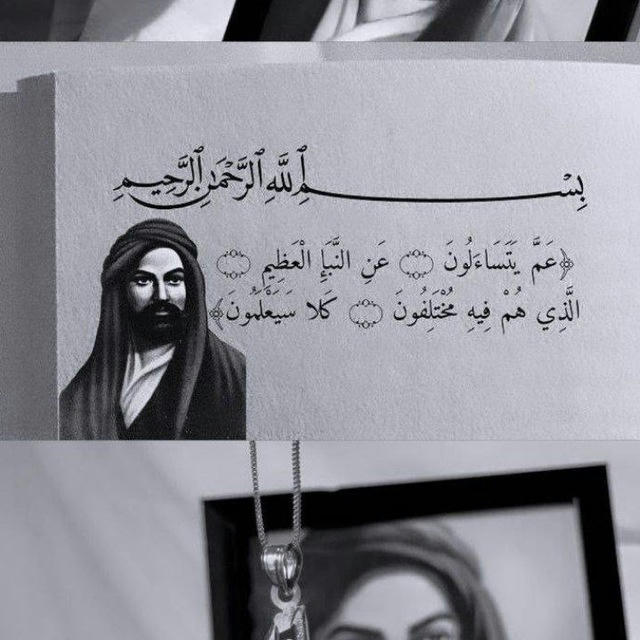 بِسْمِ ٱللَّهِ ٱلرَّحْمَٰنِ ٱلرَّحِيمِ
﴿عَمَّ يَتَسَاءَلُونَ ۝ عَنِ النَّبَإِ الْعَظِيمِ ۝
الَّذِي هُمْ فِيهِ مُخْتَلِفُونَ ۝ كَلا سَيَعْلَمُونَ﴾